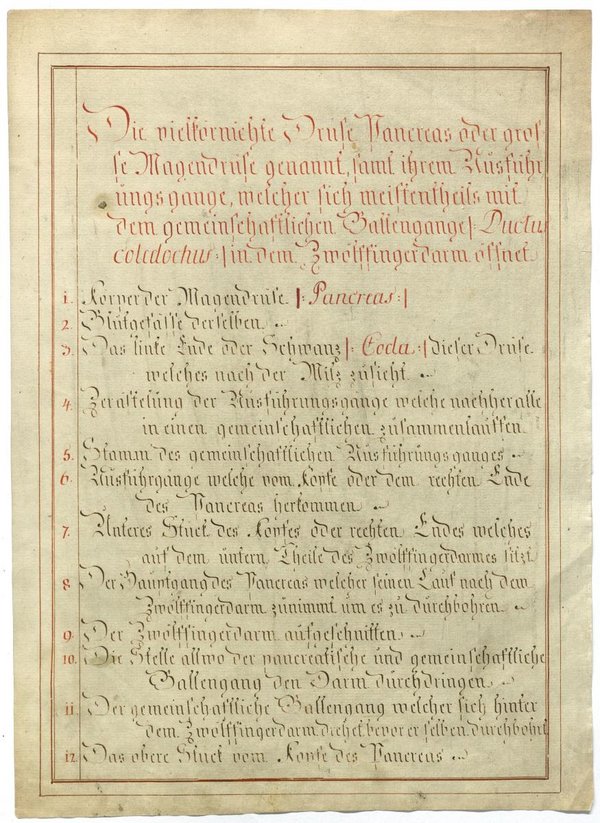 Die vielkörnichte Drüse Pancreas oder gros-
se Magendrüse genannt, samt ihrem Ausführ
ungsgange, welcher sich meistentheils mit
dem gemeinschaftlichen Gallengange |: Ductus
coledochus :| in dem Zwölffingerdarm öffnet
1. Körper der Magendrüse |: Pancreas :|
2. Blutgefässe derselben.
3. Das linke Ende oder Schwanz |: Coda :| dieser Drüse
welches nach der Milz zusieht.
4. Zerastelung der Ausführungsgänge welche nachher alle
in einen gemeinschaftlichen zusammenlauffen.
5. Stamm des gemeinschaftlichen Ausführungsganges
6. Ausführgänge welche vom Kopfe oder dem rechten Ende
des Pancreas herkommen
7. Unteres Stück des Kopfes oder rechten Endes welches
auf dem untern Theile des Zwölffingerdarmes sitzt
8. Der Hauptgang des Pancreas welcher seinen Lauf nach dem
Zwölffingerdarm zunimmt um es zu durchbohren.
9. Der Zwölffingerdarm aufgeschnitten.
10. Die Stelle allwo der pancreatische und gemeinschaftliche
Gallengang den Darm durchdringen.
11. Der gemeinschaftliche Gallengang welcher sich hinter
dem Zwölffingerdarm drehet bevor er selben durchbohrt
12. Das obere Stück vom Kopfe des Pancreas